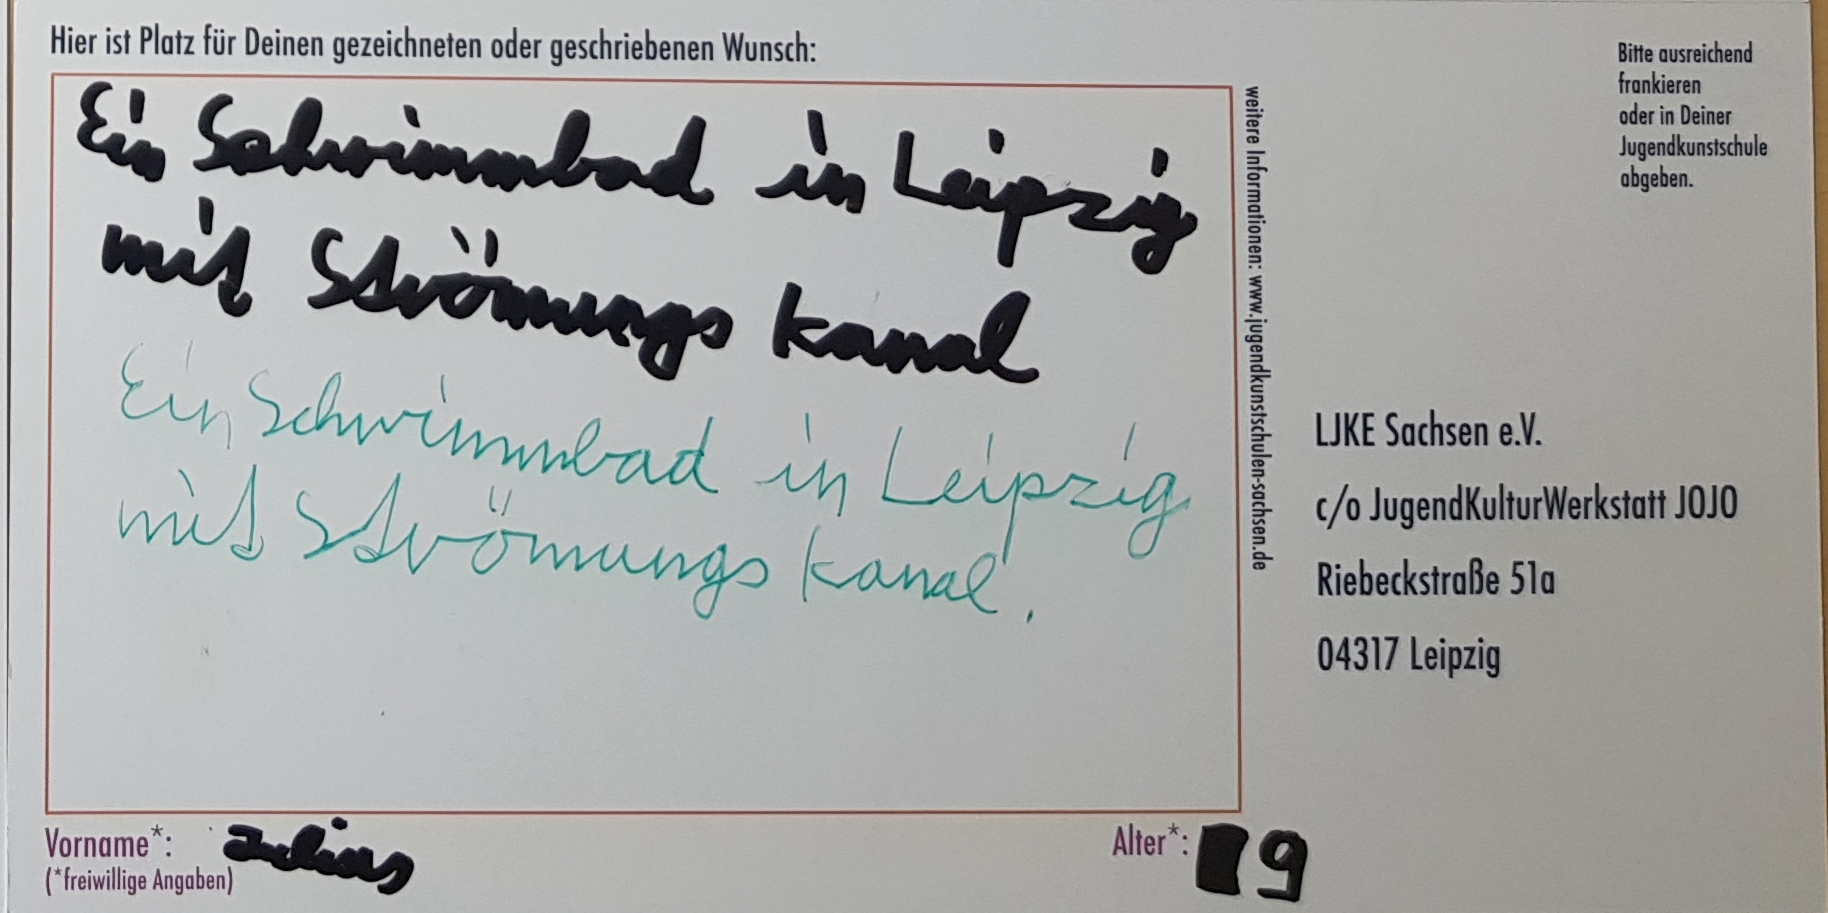 Hier ist Platz für Deinen gezeichneten oder geschriebenen Wunsch:
Ein Schwimmbad in Leipzig
mit Strömungs kanal
Ein Schwimmbad in Leipzig
mit Strömungs kanal.
Vorname*: Julius
(*freiwillige Angaben)
Alter*: 9
weitere Informationen: www.jugendkunstschulen-sachsen.de
Bitte ausreichend
frankieren
oder in Deiner
Jugendkunstschule
abgeben.
LJKE Sachsen e.V.
c/o JugendKulturWerkstatt JOJO
Riebeckstraße 51a
04317 Leipzig